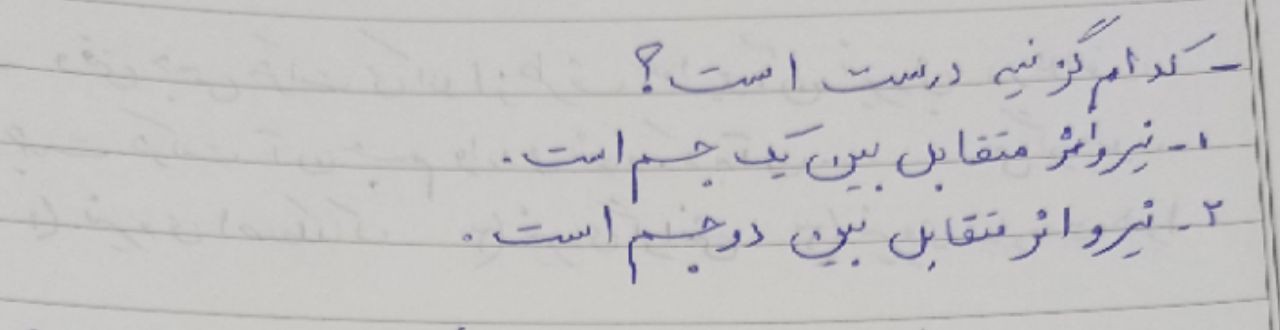 - کدام گزینه درست است؟
۱- نیرو اثر متقابل بین یک جسم است.
۲- نیرو اثر متقابل بین دو جسم است.